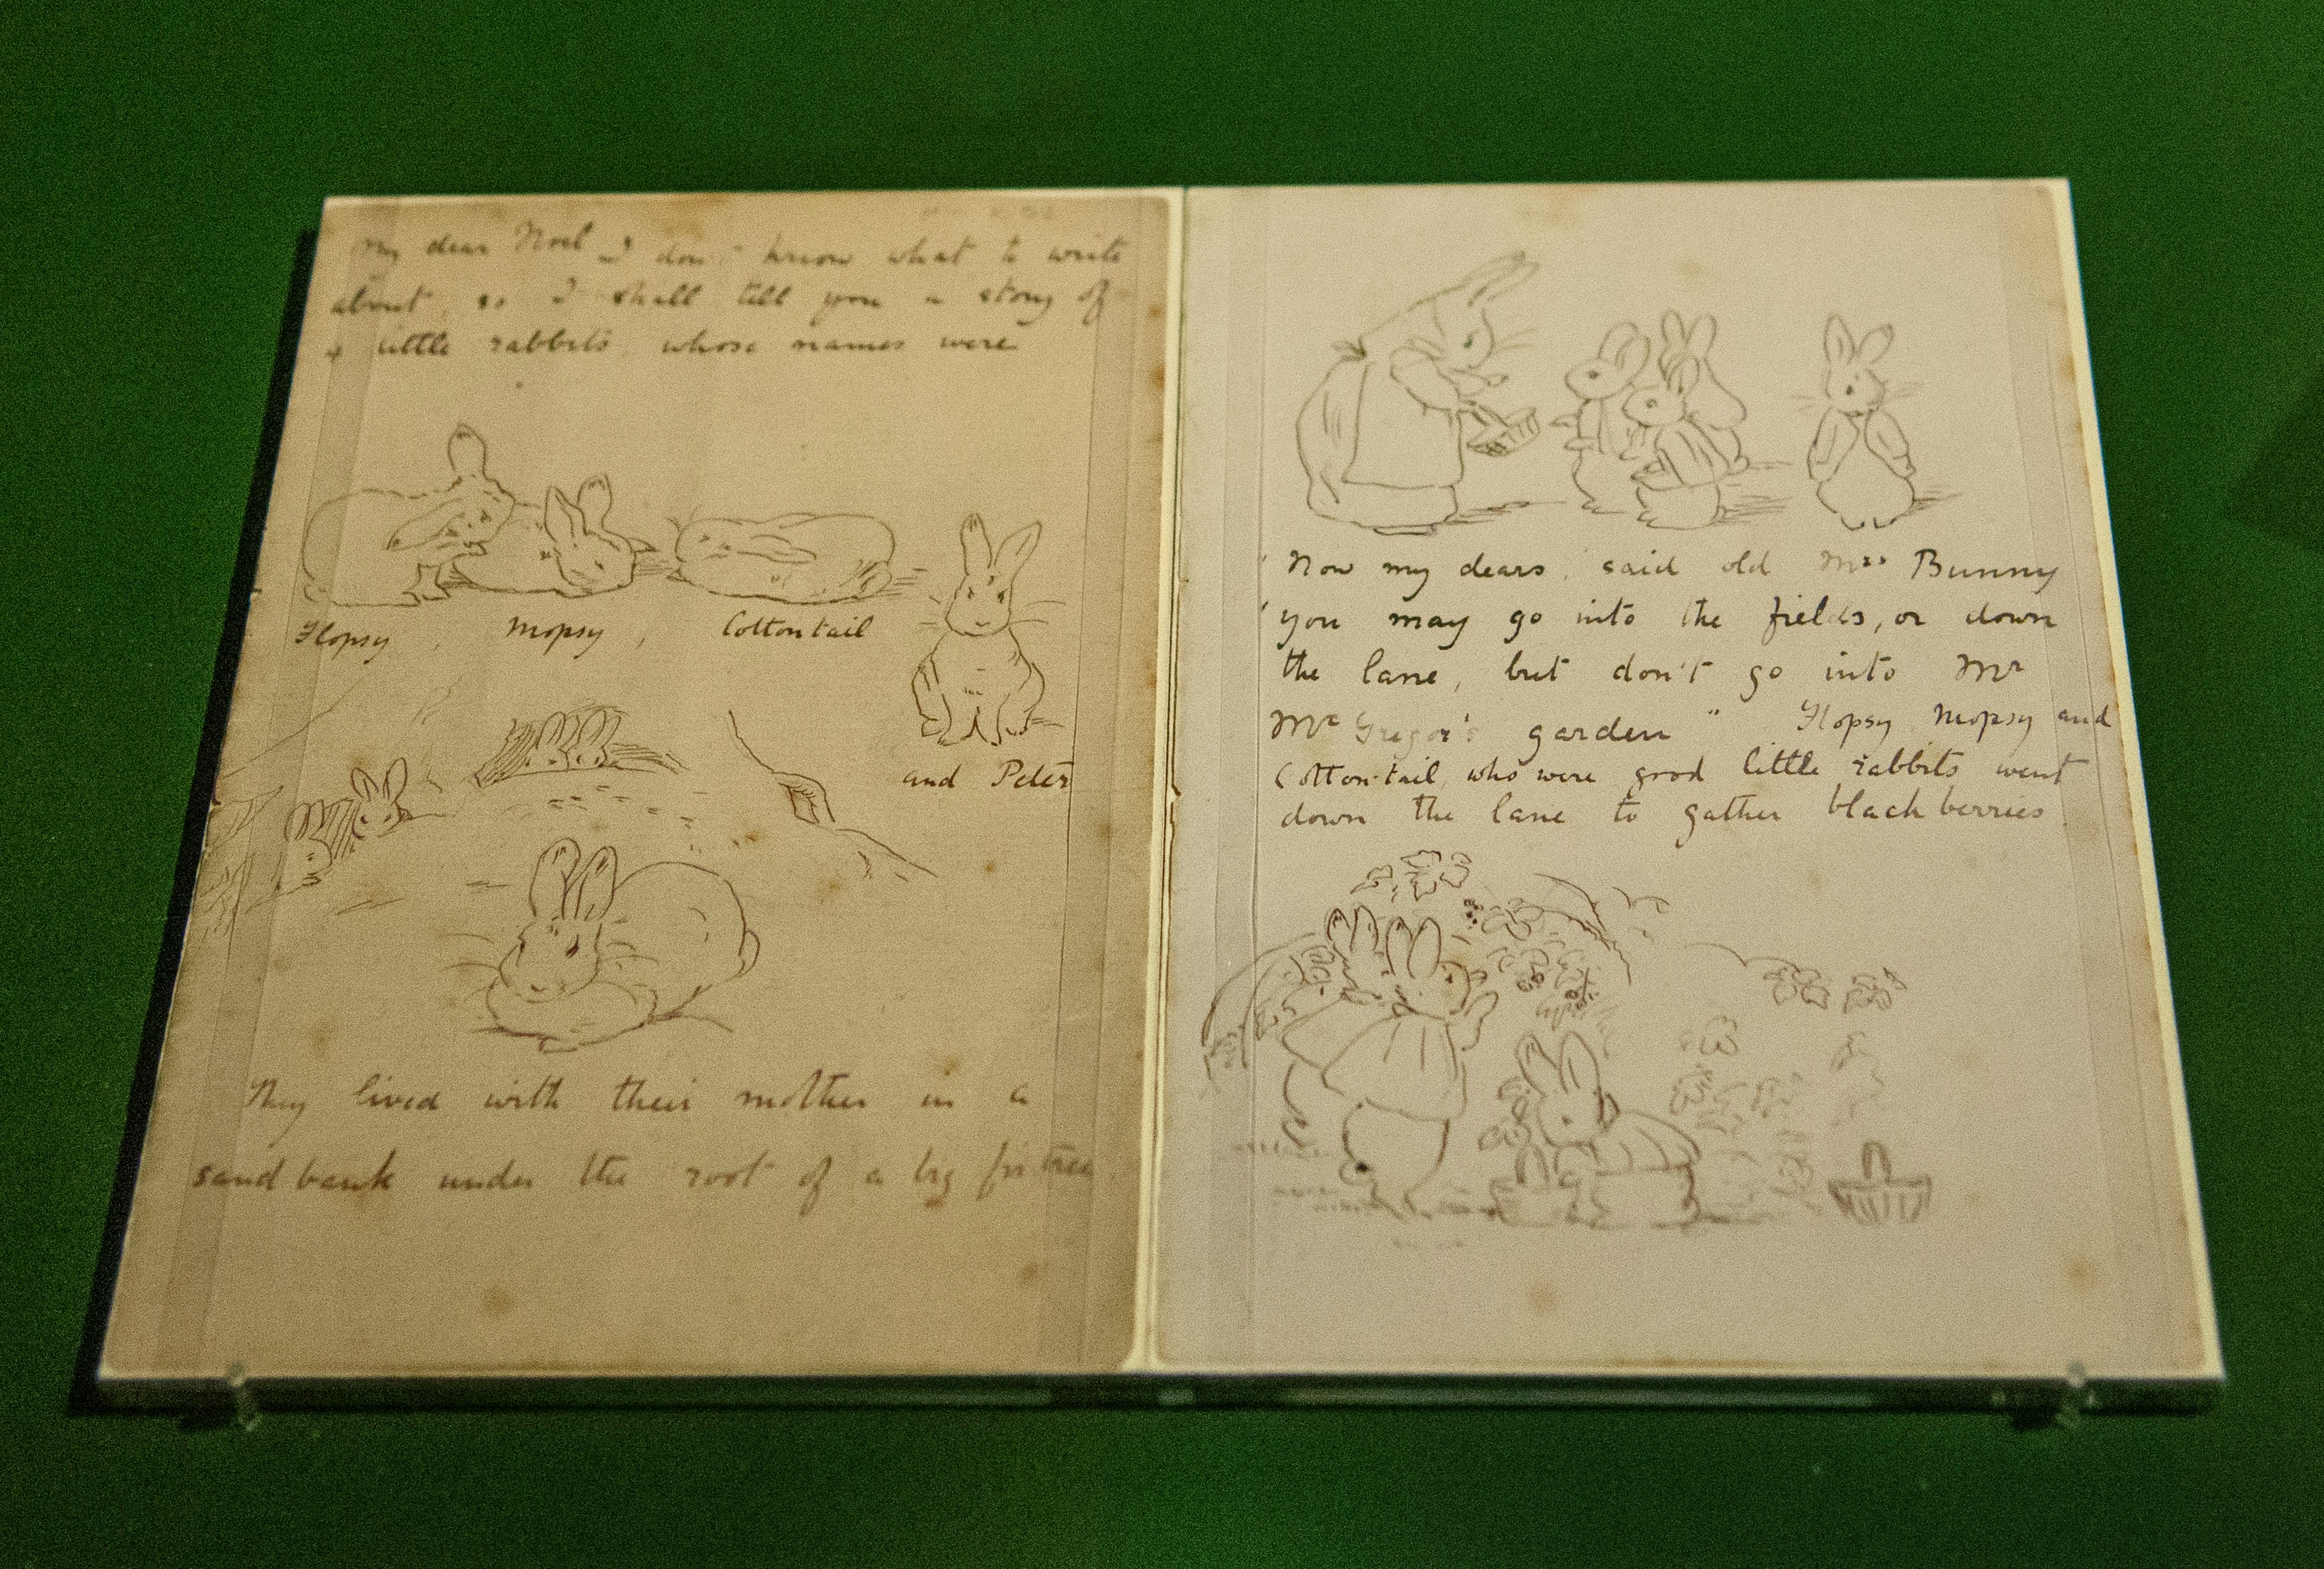 My dear Noel I don't know what to write
about, so I shall tell you a story of
4 little rabbits, whose names were
Flopsy, Mopsy, Cottontail
and Peter
They lived with their mother in a
sand bank under the root of a big fir tree.
'Now my dears,' said old Mrs Bunny
'you may go into the fields, or down
the lane, but don't go into Mr
McGregor's garden" Flopsy Mopsy and
Cotton-tail, who were good little rabbits went
down the lane to gather black berries.